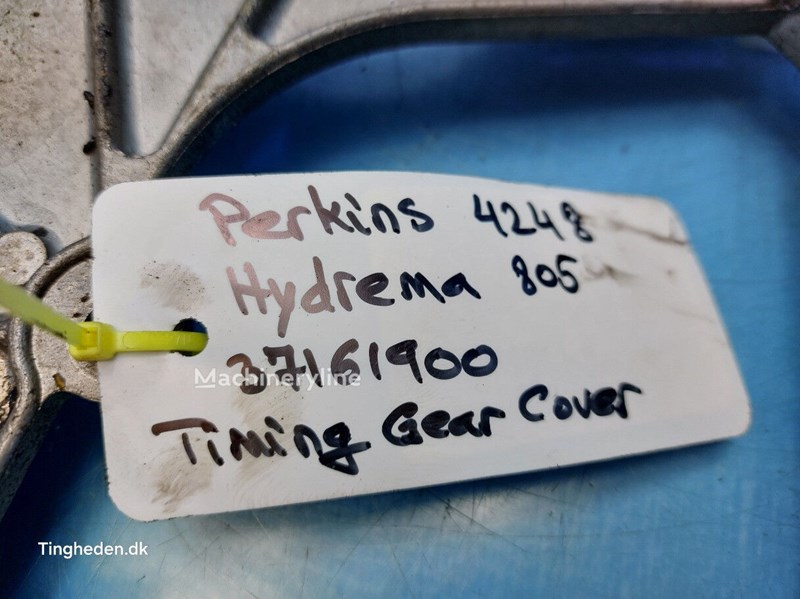 Perkins 4248
Hydrema 805
37161900
Machineryline
Timing Gear Cover
Tingheden.dk